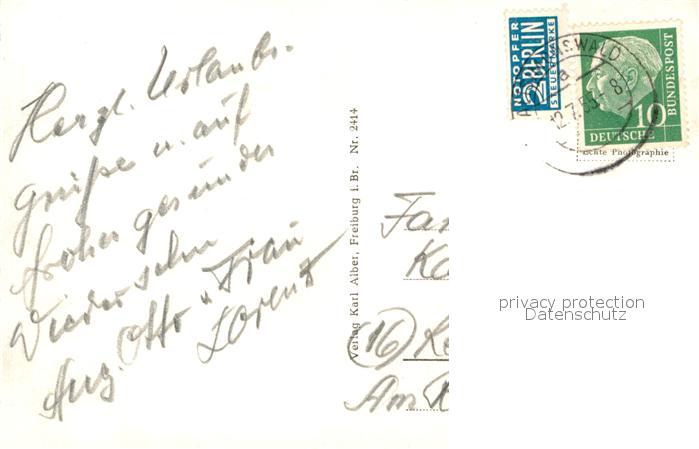 Herzl. Urlaubs-
grüße u. auf
frohes gesundes
Wiedersehn
Otto u. Frau
Lorenz
Verlag Karl Alber, Freiburg i. Br. Nr. 2414
NOTOPFER
2 BERLIN
STEUERMARKE
WALD
12.7.55
8
a
10
DEUTSCHE
BUNDESPOST
Echte Photographie
Fam
(16)
Am
privacy protection
Datenschutz